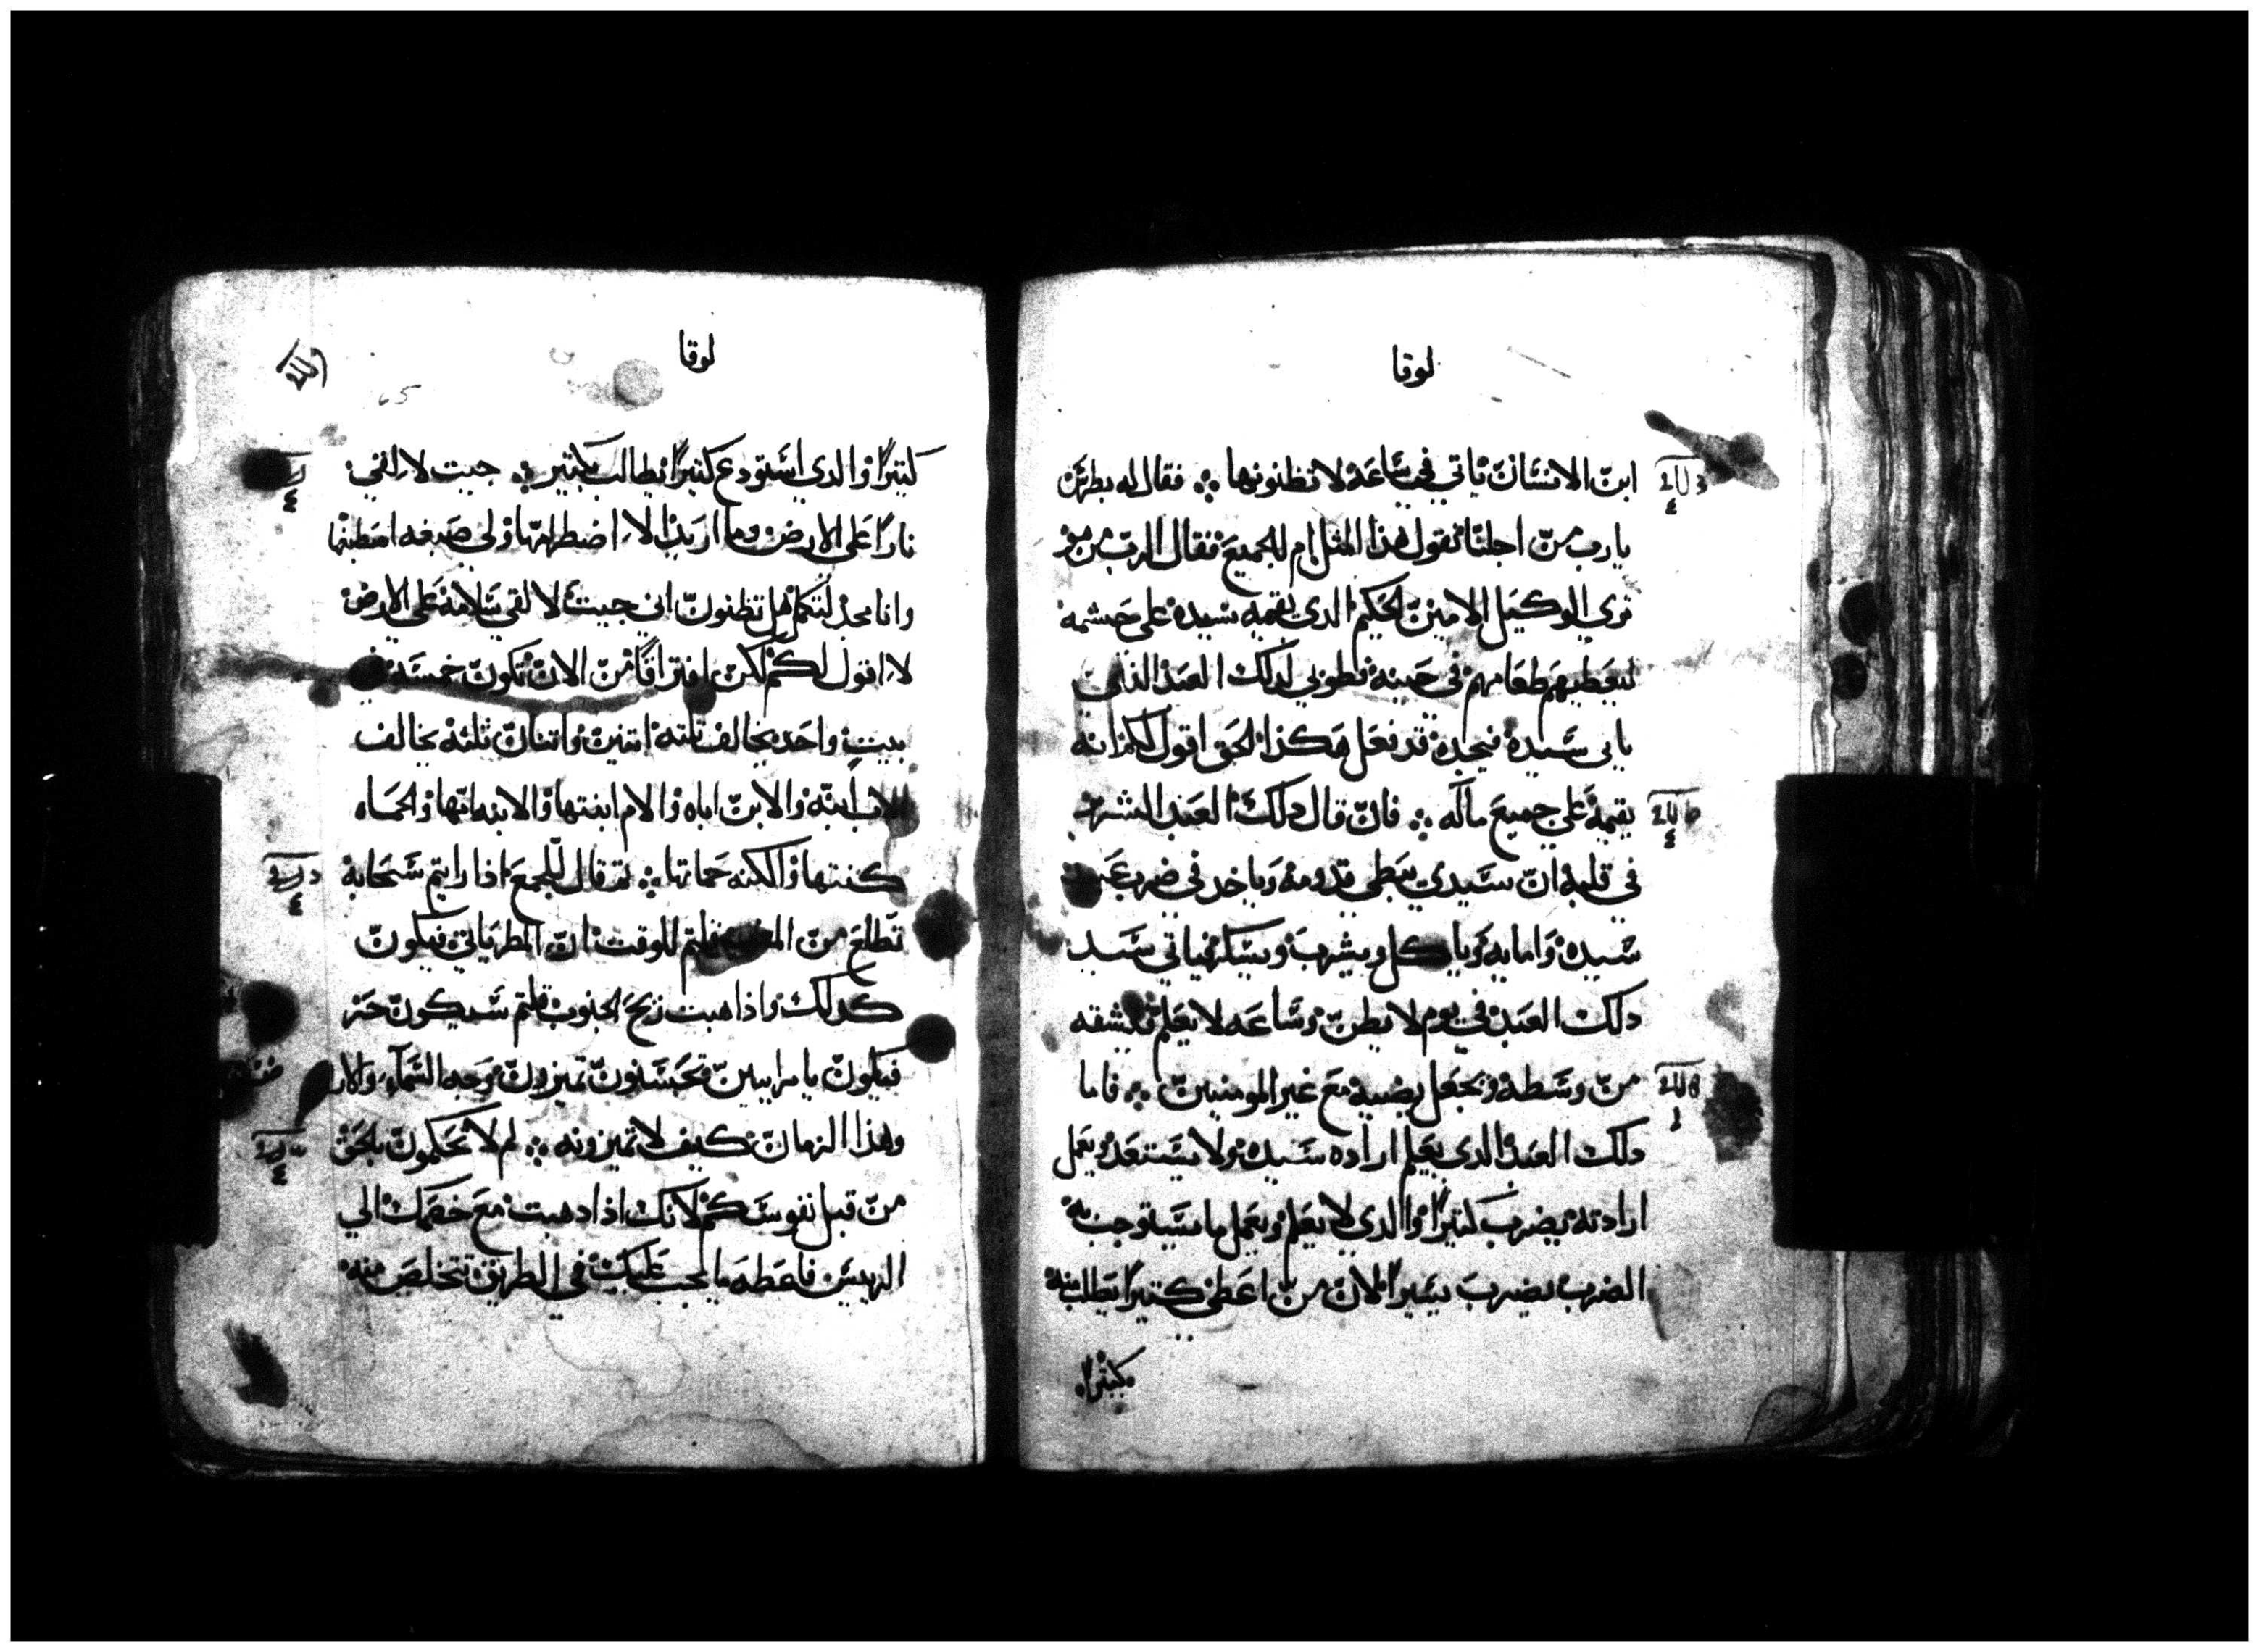 لوقا
ابن الانسان ياتي في ساعة لا تظنونها فقال له بطرس
يارب من اجلنا تقول هذا المثل ام للجميع فقال الرب من هو
تري الوكيل الامين الحكيم الدي يقيمه سيده علي حشمه
ليعطيهم طعامهم في حينه فطوبي لدلك العبد الذي
ياتي سيده فيجده قد فعل هكذا الحق اقول لكم انه
يقيمه علي جميع ماله فان قال دلك العبد الشرير
في قلبه ان سيدي يبطي قدومه وياخد في ضرب عبيد
سيده وامايه وياكل ويشرب ويسكر فياتي سيد
دلك العبد في يوم لا يظن وساعه لا يعلم فيشقه
من وسطه ويجعل نصيبه مع غير المومنين فاما
دلك العبد الدي يعلم اراده سيده ولا يستعد ويعمل
ارادته يضرب كتيرا والدي لا يعلم ويعمل ما يستوجب به
الضرب يضرب يسيرا لان من اعطي كتيرا يطلب منه
كتيرا
لوقا
65
كتيرا والدي استودع كتيرا يطالب بكتير جيت لالقي
نارا علي الارض وما اريد الا اضطرامها ولي صبغه اصطبغها
وانا مجد لتكمل هل تظنون اني جيت لالقي سلامة علي الارض
لا اقول لكم لكن افتراقا من الان تكون خمسه في
بيت واحد يخالف تلته اتنين واتنان تلته يخالف
الاب ابنه والابن اباه والام ابنتها والابنه امها والحماه
كنتها والكنه حماتها تم قال للجمع اذا رايتم سحابة
تطلع من المغرب قلتم للوقت ان المطر ياتي فيكون
كدلك واذا هبت ريح الجنوب قلتم سيكون حر
فيكون يا مراييين تحسنون تميزون وجه السماء والارض
وهذا الزمان كيف لا تميزونه لم لا تحكمون بالحق
من قبل نفوسكم لانك اذا دهبت مع خصمك الي
الرييس فاعطه ما يجب عليك في الطريق تتخلص منه